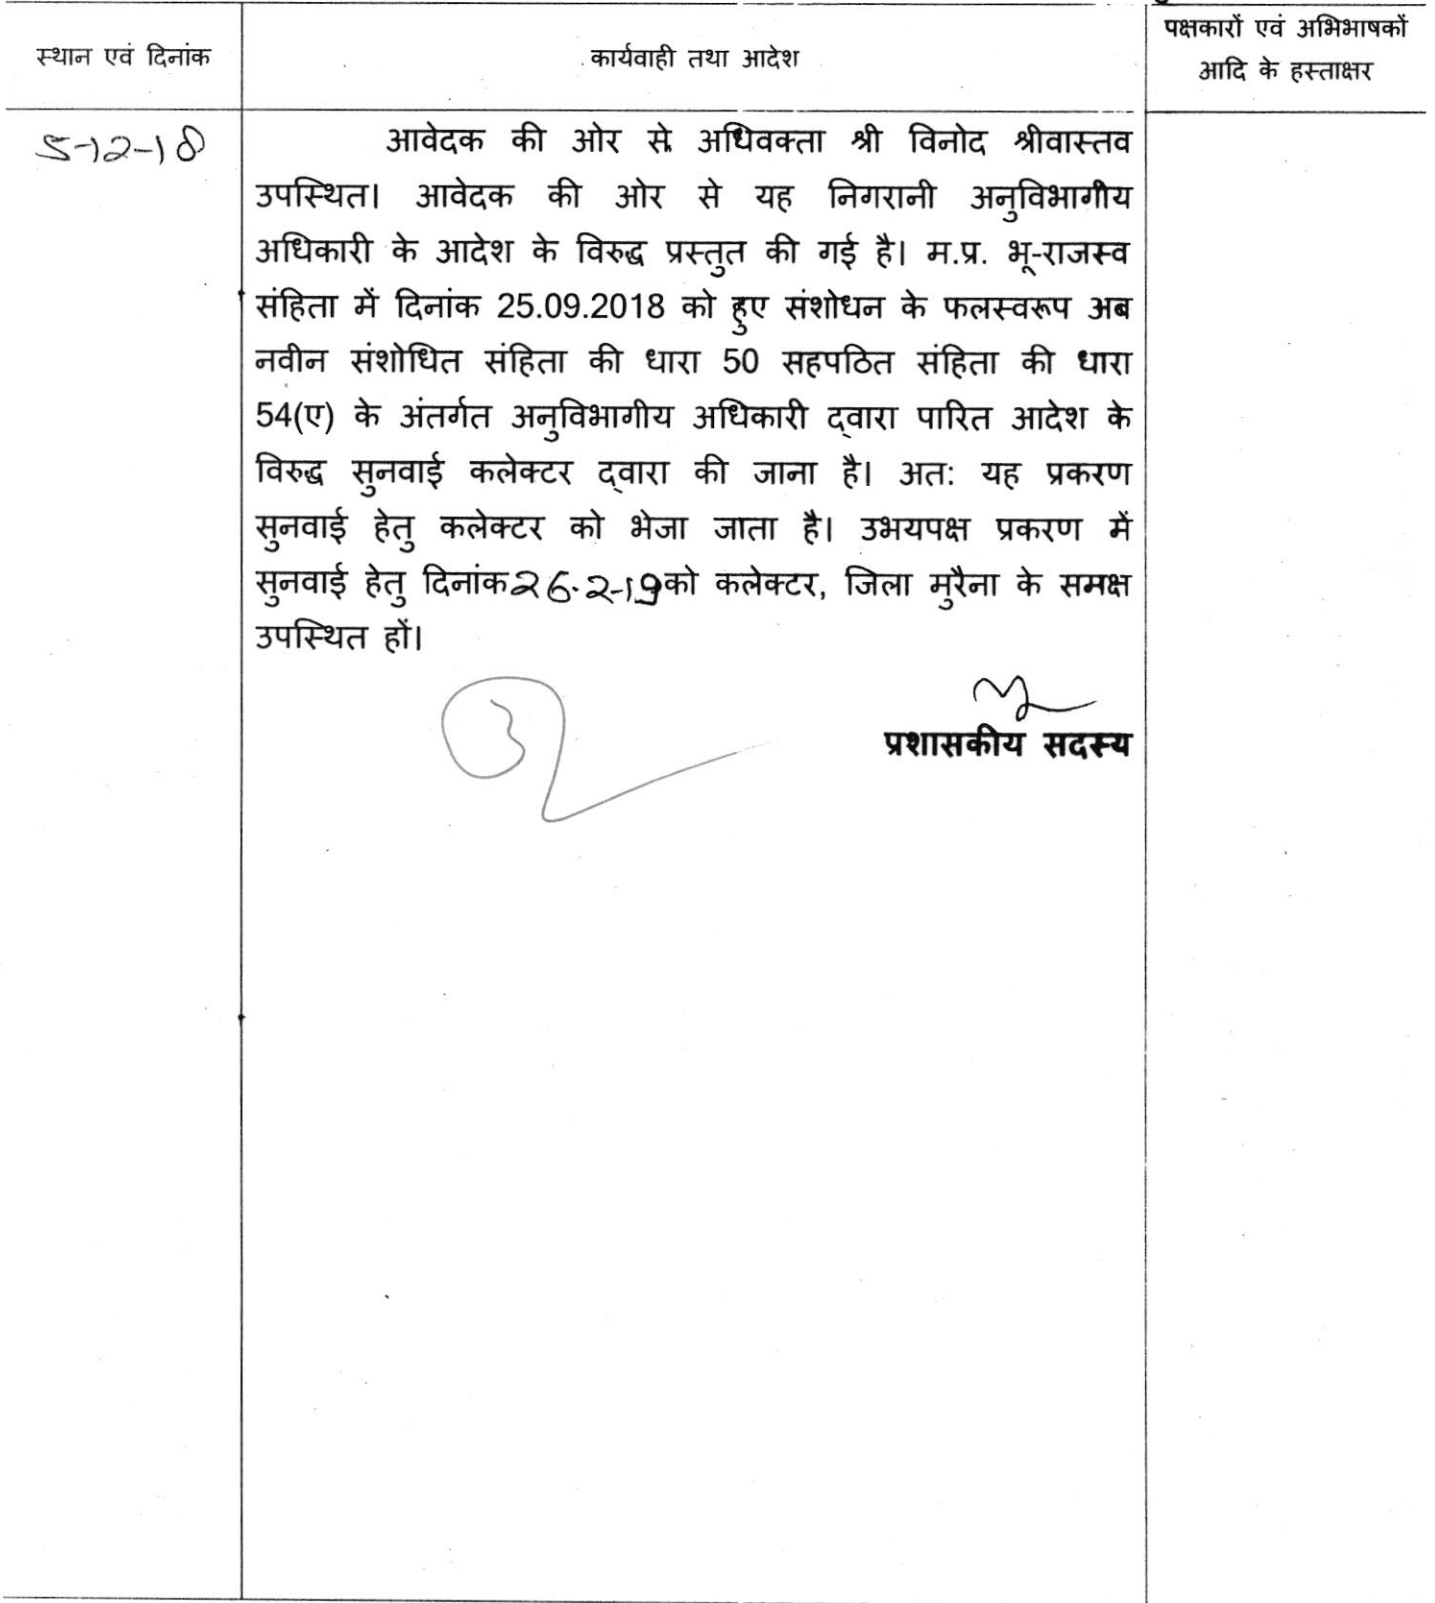 स्थान एवं दिनांक
कार्यवाही तथा आदेश
पक्षकारों एवं अभिभाषकों
आदि के हस्ताक्षर
5-12-18
आवेदक की ओर से अधिवक्ता श्री विनोद श्रीवास्तव
उपस्थित। आवेदक की ओर से यह निगरानी अनुविभागीय
अधिकारी के आदेश के विरुद्ध प्रस्तुत की गई है। म.प्र. भू-राजस्व
संहिता में दिनांक 25.09.2018 को हुए संशोधन के फलस्वरूप अब
नवीन संशोधित संहिता की धारा 50 सहपठित संहिता की धारा
54(ए) के अंतर्गत अनुविभागीय अधिकारी द्वारा पारित आदेश के
विरुद्ध सुनवाई कलेक्टर द्वारा की जाना है। अतः यह प्रकरण
सुनवाई हेतु कलेक्टर को भेजा जाता है। उभयपक्ष प्रकरण में
सुनवाई हेतु दिनांक 26-2-19 को कलेक्टर, जिला मुरैना के समक्ष
उपस्थित हों।
प्रशासकीय सदस्य